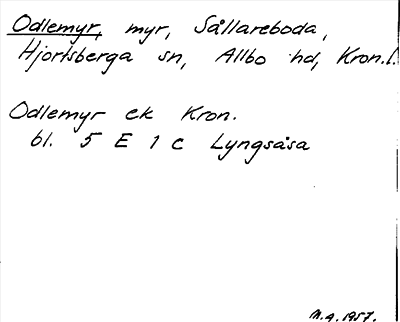 Odlemyr, myr, Sållareboda,
Hjortsberga sn, Allbo hd, Kron.l.
Odlemyr ek Kron.
bl. 5 E 1 c Lyngsåsa
M.q. 1957.